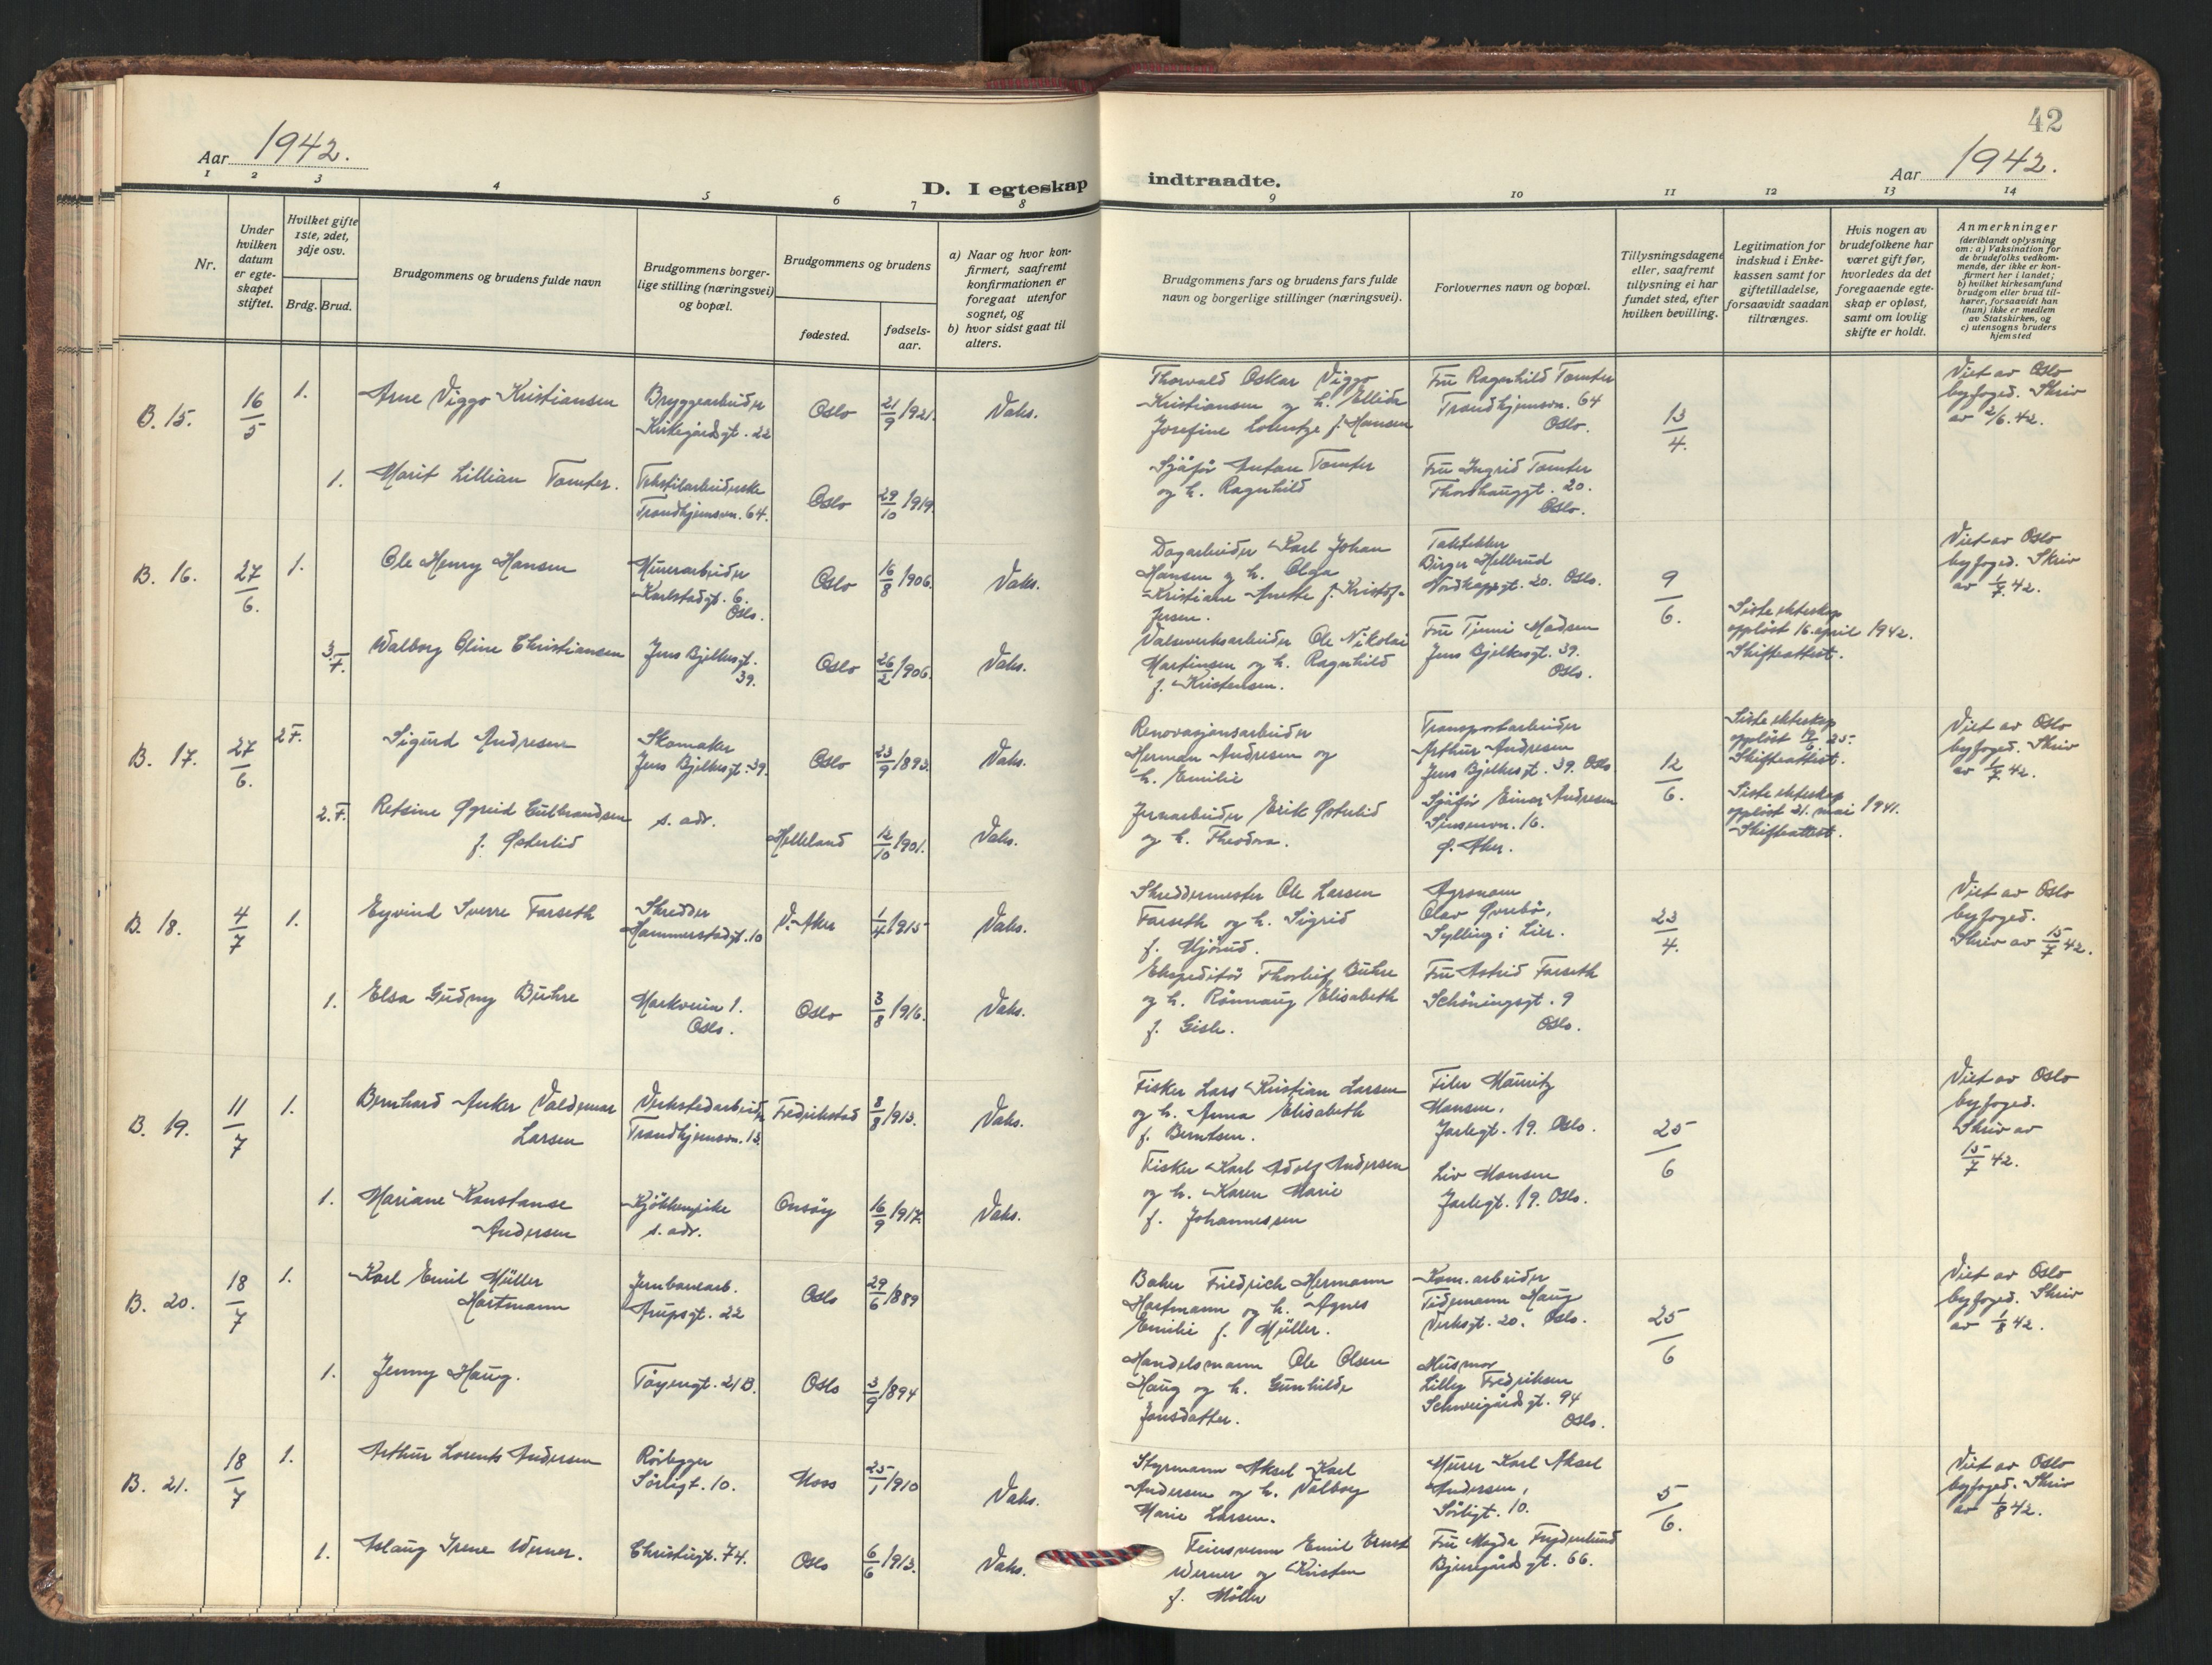 42
Aar 1942.
Aar 1942.
D. I egteskap indtraadte.
1 2 3 4 5 6 7 8 9 10 11 12 13 14
Nr.
Under
hvilken
datum
er egte-
skapet
stiftet.
Hvilket gifte
1ste, 2det,
3dje osv.
Brdg. Brud.
Brudgommens og brudens fulde navn
Brudgommens borger-
lige stilling (næringsvei)
og bopæl.
Brudgommens og brudens
fødested.
fødsels-
aar.
a) Naar og hvor kon-
firmert, saafremt
konfirmationen er
foregaat utenfor
sognet, og
b) hvor sidst gaat til
alters.
Brudgommens fars og brudens fars fulde
navn og borgerlige stillinger (næringsvei).
Forlovernes navn og bopæl.
Tillysningsdagene
eller, saafremt
tillysning ei har
fundet sted, efter
hvilken bevilling.
Legitimation for
indskud i Enke-
kassen samt for
giftetilladelse,
forsaavidt saadan
tiltrænges.
Hvis nogen av
brudefolkene har
været gift før,
hvorledes da det
foregaaende egte-
skap er opløst,
samt om lovlig
skifte er holdt.
Anmerkninger
(deriblandt oplysning
om: a) Vaksination for
de brudefolks vedkom-
mende, der ikke er kon-
firmert her i landet;
b) hvilket kirkesamfund
brudgom eller brud til-
hører, forsaavidt han
(hun) ikke er medlem
av Statskirken, og
c) utensogns bruders
hjemsted
B. 15.
16/5
1.
Arne Viggo Kristiansen
Bryggearbeider
Kirkegårdsgt. 22
Oslo
21/9 1921.
Vaks.
Thorvald Oskar Viggo
Kristiansen og h. Ellida
Josefine f. Hansen
Fru Ragnhild Tomter
Trondhjemsvn. 64
Oslo.
13/4.
Viet av Oslo
byfoged. Skriv
av 2/6. 42.
1.
Marit Lillian Tomter.
Tekstilarbeiderske
Trondhjemsvn. 64.
Oslo
29/10 1919.
Sjåfør Anton Tomter
og h. Ragnhild
Fru Ingrid Tomter
Thorshauggt. 20.
Oslo.
B. 16.
27/6.
1.
Ole Henry Hansen
Murerarbeider
Karlstadgt. 6.
Oslo.
Oslo
16/8 1906.
Vaks.
Dagarbeider Karl Johan
Hansen og h. Olga
Kristiane Anette f. Kristof-
fersen.
Taktekker
Birger Hellerud
Nordkappgt. 20. Oslo.
9/6.
Viet av Oslo
byfoged. Skriv
av 1/7. 42.
3. F.
Walborg Oline Christiansen
Jens Bjelkesgt.
39.
Oslo
26/2 1906.
Vaks.
Valseverksarbeider Ole Nikolai
Martinsen og h. Ragnhild
f. Kristensen.
Fru Madsen
Jens Bjelkesgt. 39.
Oslo.
Siste ekteskap
oppløst 16. april 1942.
Skifteattest.
B. 17.
27/6.
2 F.
Sigurd Andresen
Skomaker
Jens Bjelkesgt. 39.
Oslo
23/9 1893.
Vaks.
Renovasjonsarbeider
Herman Andresen og
h. Emilie
Transportarbeider
Arthur Andresen
Jens Bjelkesgt. 39. Oslo
12/6.
Siste ekteskap
oppløst 19/6. 25.
Skifteattest.
Viet av Oslo
byfoged. Skriv
av 1/7. 42.
2. F.
Retsine Gulbrandsen
f. Østerlid
s. adr.
Helleland
12/10 1901.
Vaks.
Jernarbeider Erik Østerlid
og h. Theodora.
Sjåfør Einar Andresen
Sinsenvn. 16.
Ø. Aker.
Siste ekteskap
oppløst 21. mai 1941.
Skifteattest.
B. 18.
4/7
1.
Eyvind Sverre Farseth
Skredder
Hammerstadgt. 10
V. Aker
1/4 1915
Vaks.
Skreddermester Ole Larsen
Farseth og h. Sigrid
f. Mjørud.
Agronom
Olav Øvrebø,
Sylling i Lier.
23/4.
Viet av Oslo
byfoged.
Skriv av 15/7 42.
1.
Elsa Gudny Buhre
Markveien 1.
Oslo.
Oslo
3/8 1916.
Vaks.
Ekspeditør Thorleif Buhre
og h. Rønnaug Elisabeth
f. Gisle.
Fru Astrid Farseth
Schøningsgt. 9
Oslo.
B. 19.
11/7
1.
Bernhard Anker Valdemar
Larsen
Verkstedarbeider
Trondhjemsvn. 13.
Fredrikstad
8/8 1913.
Vaks.
Fisker Lars Kristian Larsen
og h. Anna Elisabeth
f. Berntsen.
Filer Mauritz
Hansen,
Jarlegt. 19. Oslo.
25/6
Viet av Oslo
byfoged.
Skriv av
15/7 42.
1.
Mariane Konstanse
Andersen
Kjøkkenpike
s. adr.
Onsøy
16/9 1917.
Vaks.
Fisker Karl Adolf Andersen
og h. Karen Marie
f. Johannessen
Liv Hansen
Jarlegt. 19. Oslo.
B. 20.
18/7
1.
Karl Emil Müller
Hartmann
Jernbanearb.
Arupsgt. 22
Oslo
29/6 1889
Baker Friedrich Hermann
Hartmann og h. Agnes
Emilie f. Müller.
Kom. arbeider
Tidemann Haug
Verksgt. 20. Oslo.
25/6
Viet av Oslo
byfoged. Skriv
av 1/8 42.
1.
Jenny Haug.
Tøyengt. 21 B.
Oslo
3/9 1894
Handelsmann Ole Olsen
Haug og h. Gunhilde
Jonsdatter.
Husmor
Lilly Fredriksen
Schweigårdsgt. 94
Oslo.
B. 21.
18/7
1.
Arthur Lorents Andersen
Rørlegger
Sørligt. 10.
Moss
25/1 1910
Vaks.
Styrmann Aksel Karl
Andersen og h. Valborg
Marie Larsen.
Murer Karl Aksel
Andersen,
Sørligt. 10.
5/6.
Viet av Oslo
byfoged. Skriv
av 1/8 42.
1.
Aslaug Irene Werner.
Christiesgt. 74.
Oslo
6/6 1913.
Vaks.
Feiersvenn Emil Ernst
Werner og Kirsten
f. Møller
Fru Magda Frydenlund
Bjerregårdsgt. 66.